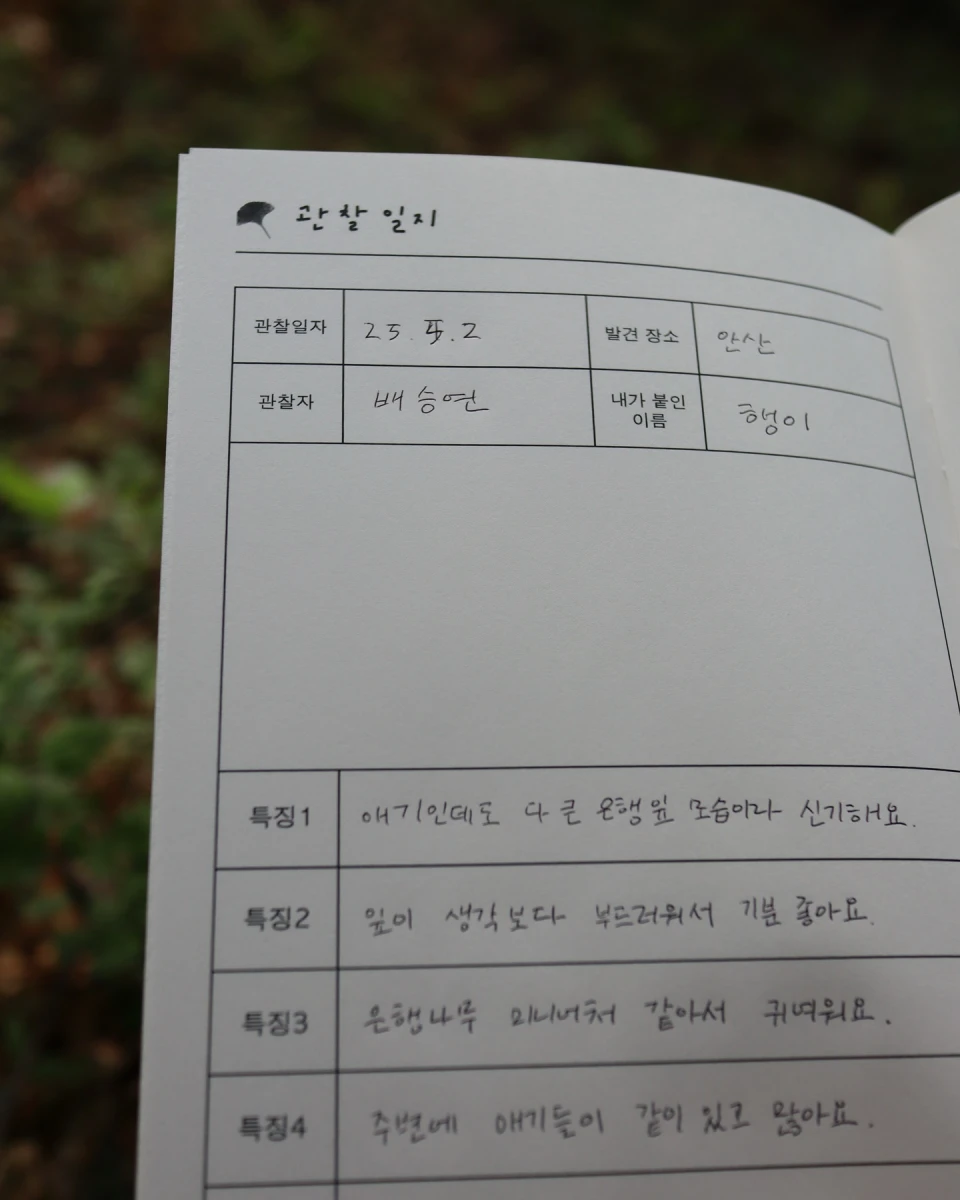 관찰일지
관찰일자 25.5.2 발견 장소 안산
관찰자 배승연 내가 붙인 이름 행이
특징1 애기인데도 다 큰 은행잎 모습이라 신기해요.
특징2 잎이 생각보다 부드러워서 기분 좋아요.
특징3 은행나무 미니어처 같아서 귀여워요.
특징4 주변에 애기들이 같이 있고 많아요.